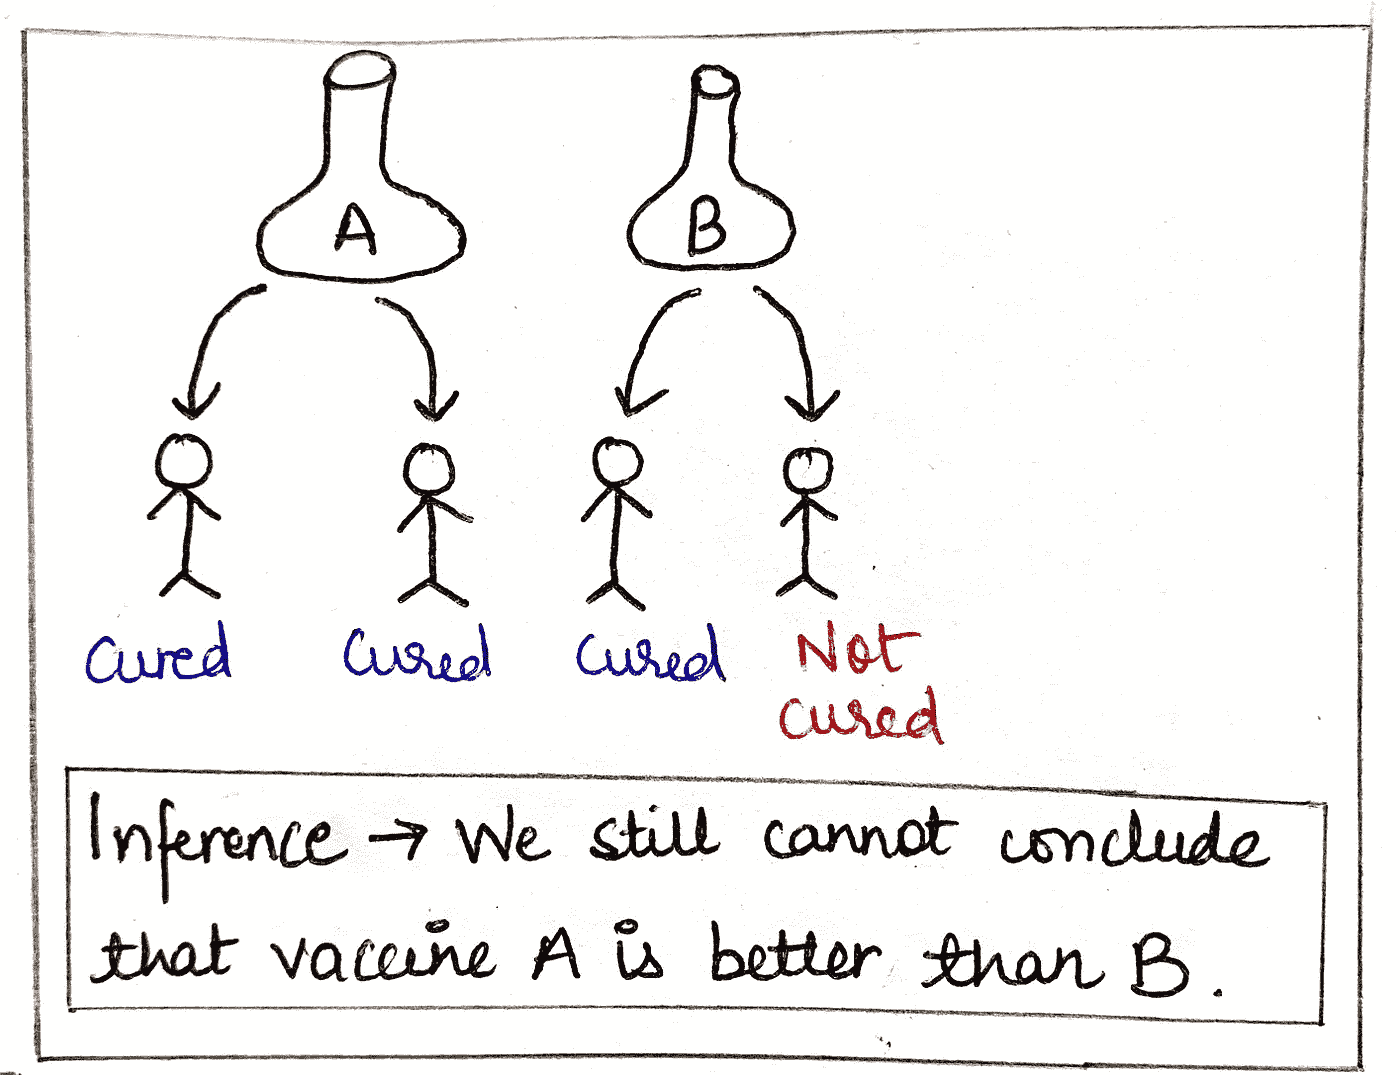 A
B
Cured
Cured
Cured
Not
cured
Inference → We still cannot conclude
that vaccine A is better than B.